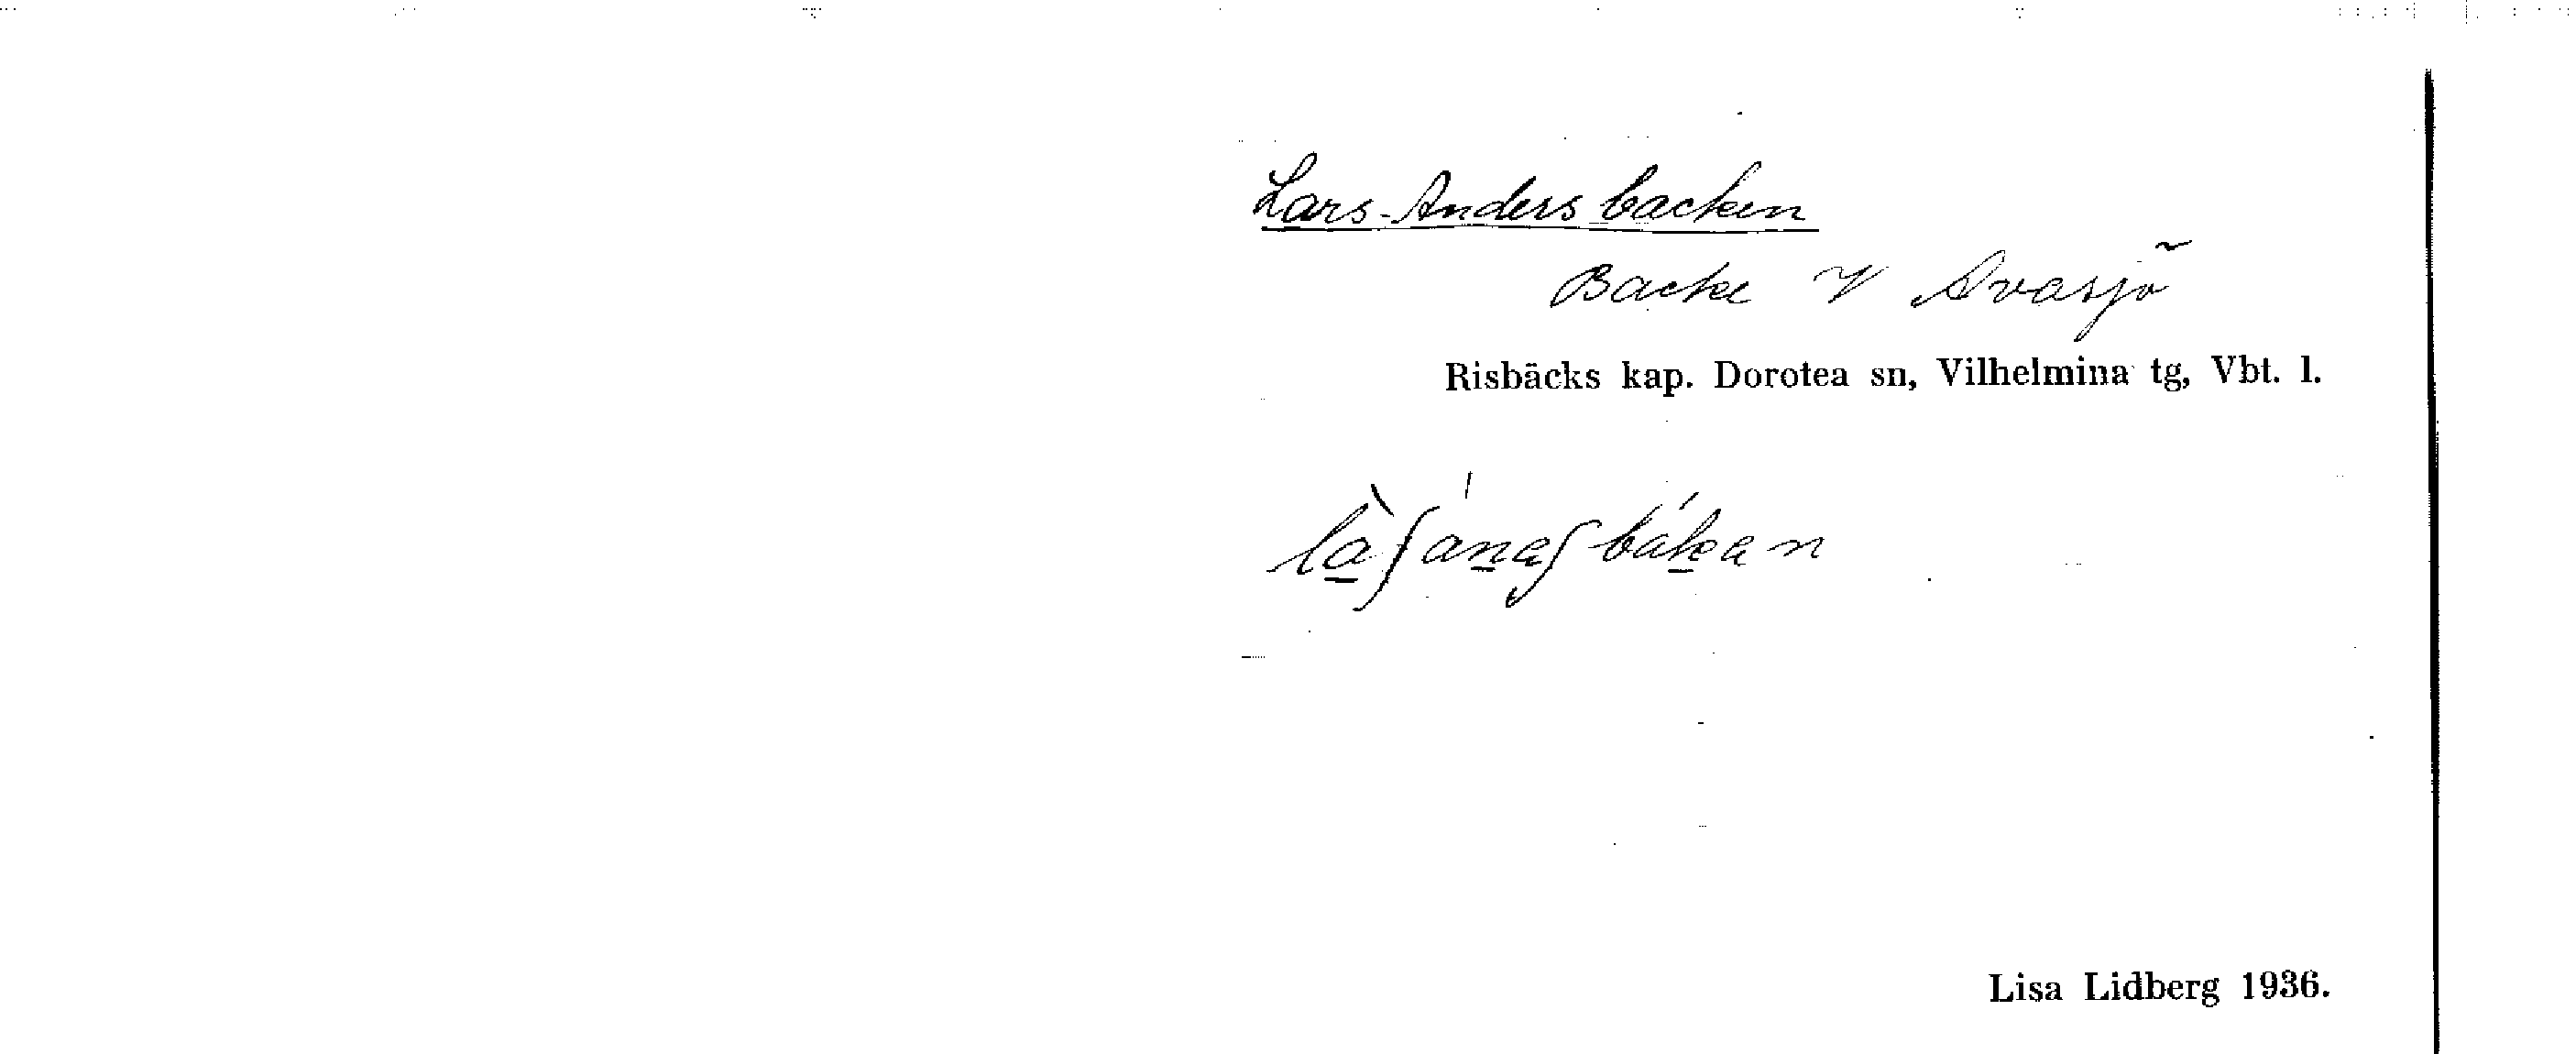 Lars-Anders backen
Backe V Avasjö
Risbäcks kap. Dorotea sn, Vilhelmina tg, Vbt. l.
Lisa Lidberg 1936.